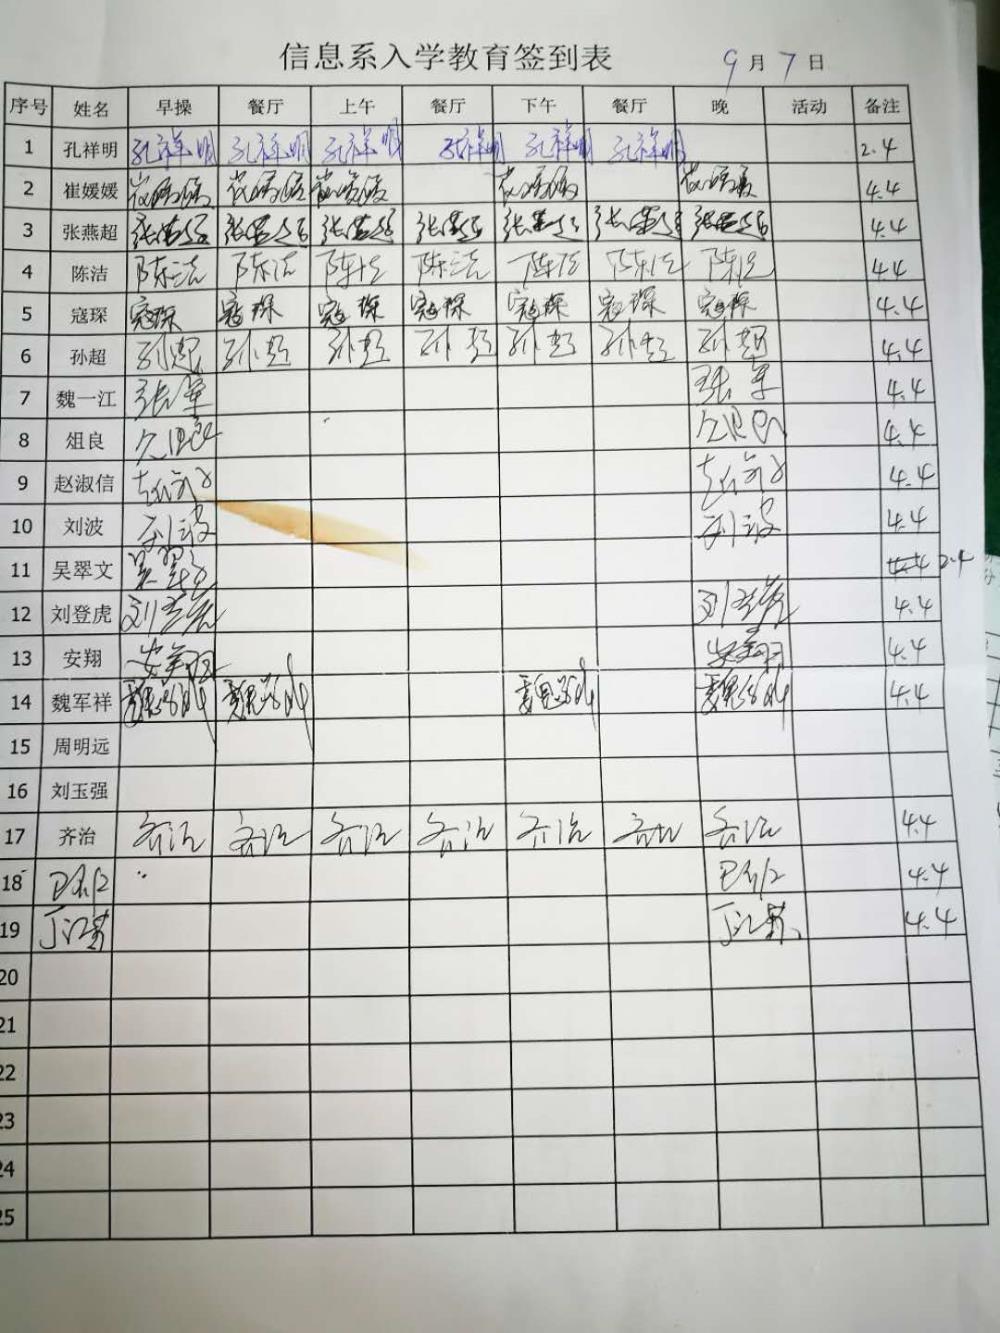 信息系入学教育签到表 9月7日
序号 姓名 早操 餐厅 上午 餐厅 下午 餐厅 晚 活动 备注
1 孔祥明 孔祥明 孔祥明 孔祥明 孔祥明 孔祥明 孔祥明 2.4
2 崔媛媛 崔媛媛 崔媛媛 崔媛媛 崔媛媛 崔媛媛 4.4
3 张燕超 张燕超 张燕超 张燕超 张燕超 张燕超 张燕超 张燕超 4.4
4 陈洁 陈洁 陈洁 陈洁 陈洁 陈洁 陈洁 陈洁 4.4
5 寇琛 寇琛 寇琛 寇琛 寇琛 寇琛 寇琛 寇琛 4.4
6 孙超 孙超 孙超 孙超 孙超 孙超 孙超 孙超 4.4
7 魏一江 张军 张军 4.4
8 俎良 4.4
9 赵淑信 4.4
10 刘波 刘波 刘波 4.4
11 吴翠文 吴翠文 4.4 2.4
12 刘登虎 刘登虎 刘登虎 4.4
13 安翔 安翔 安翔 4.4
14 魏军祥 4.4
15 周明远
16 刘玉强
17 齐治 齐治 齐治 齐治 齐治 齐治 齐治 齐治 4.4
18 4.4
19 丁江苏 丁江苏 4.4
20
21
22
23
24
25